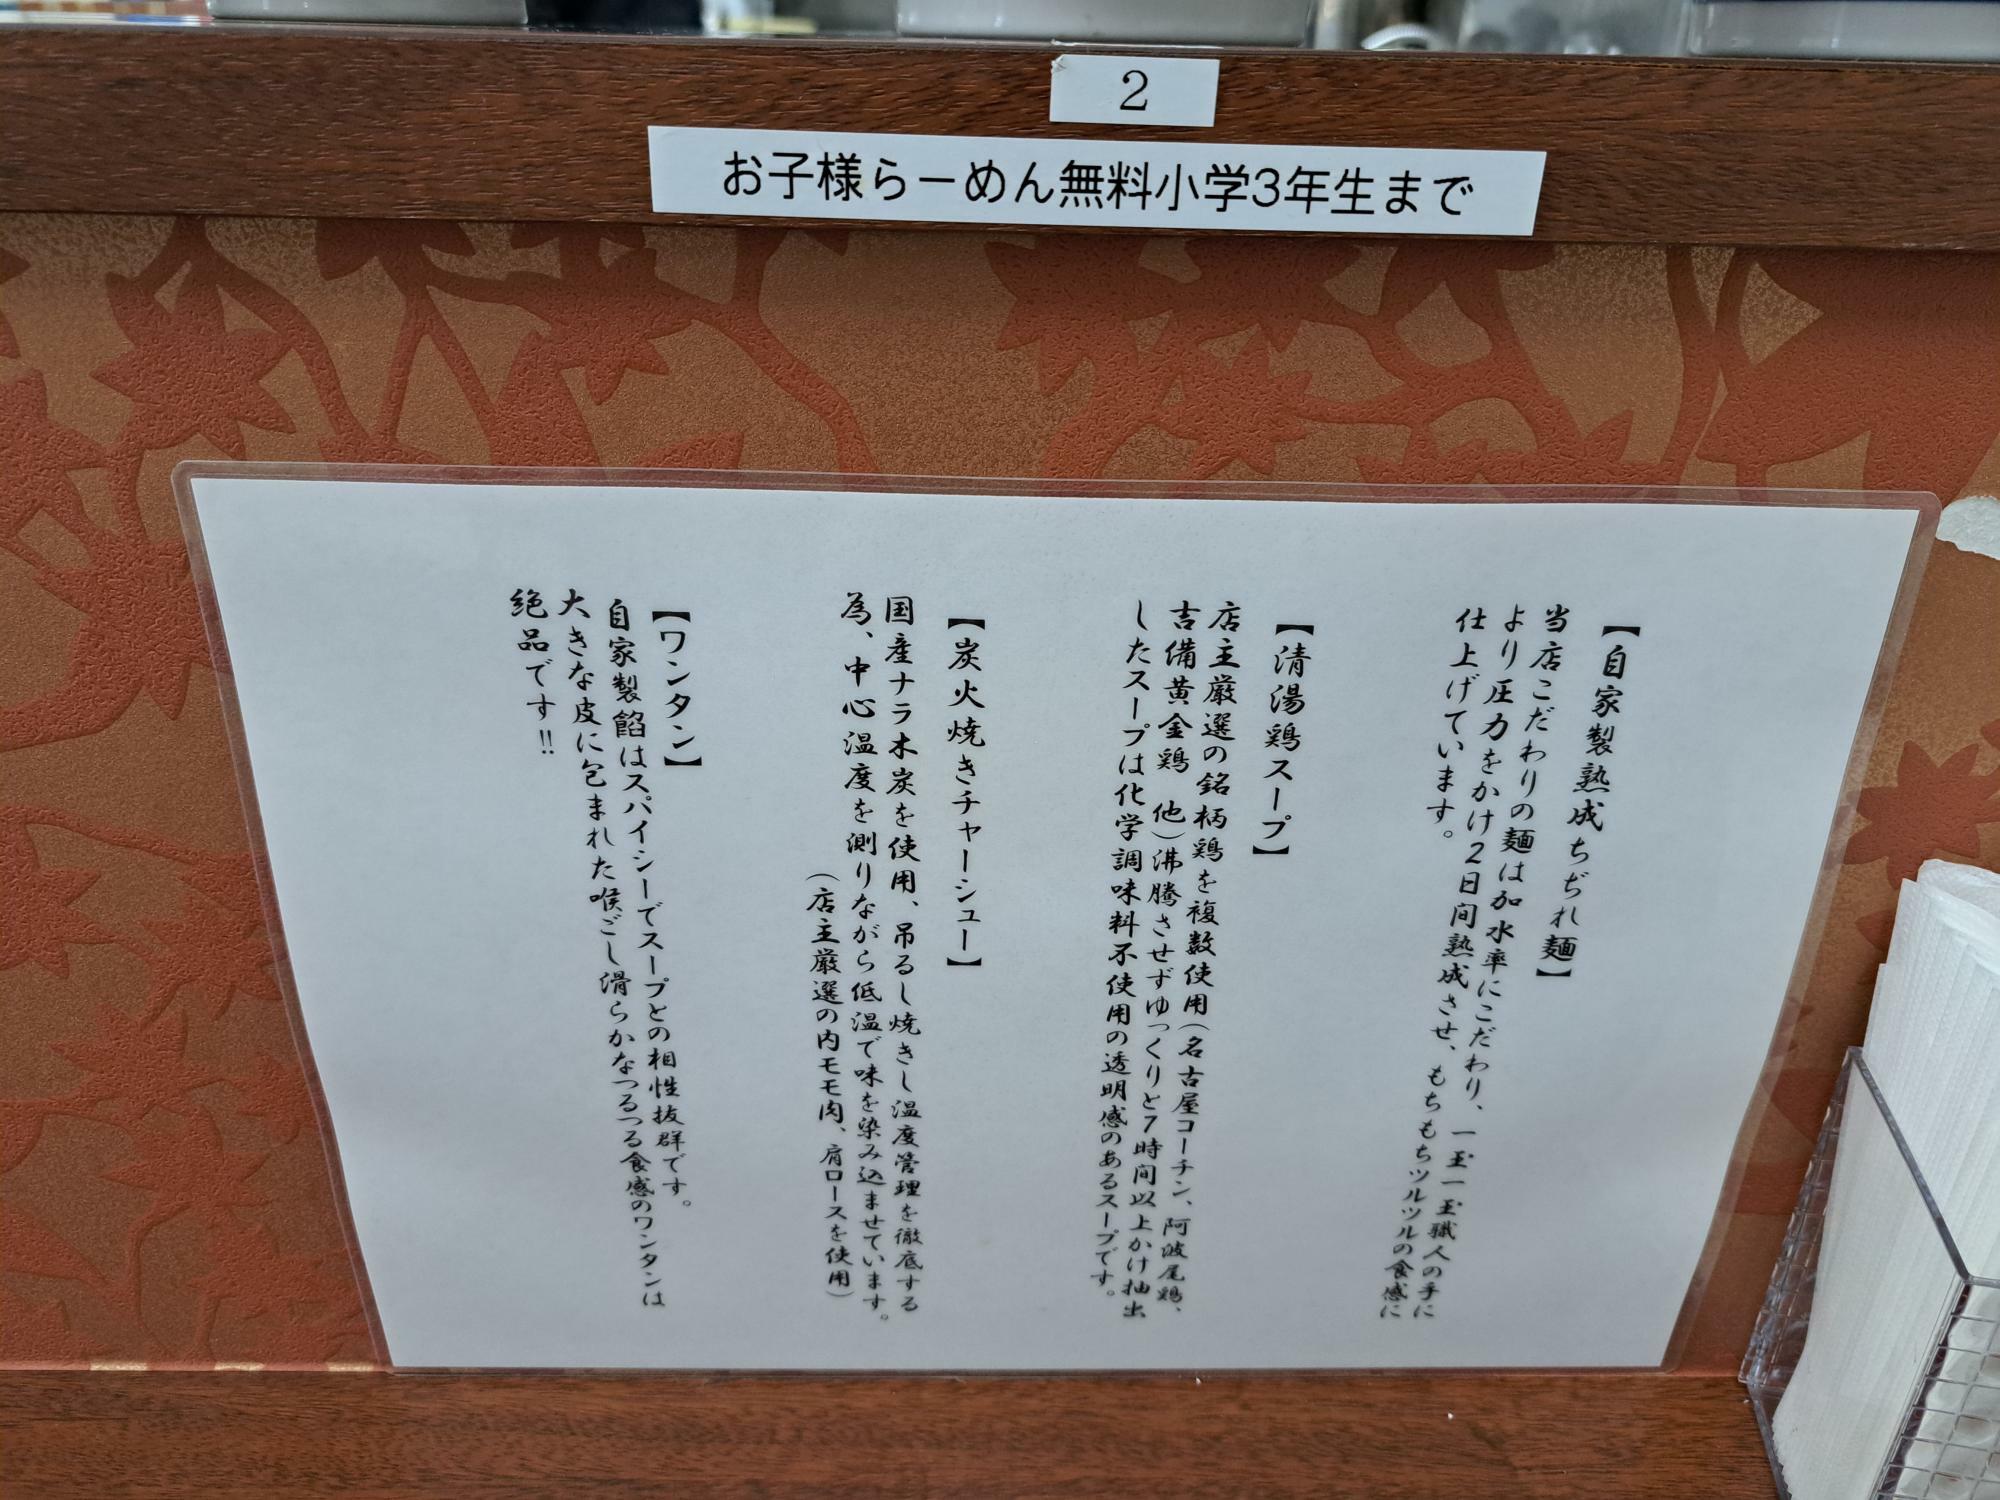 2
お子様らーめん無料小学3年生まで
【自家製熟成ちぢれ麺】
当店こだわりの麺は加水率にこだわり、一玉一玉職人の手に
より圧力をかけ2日間熟成させ、もちもちツルツルの食感に
仕上げています。
【清湯鶏スープ】
店主厳選の銘柄鶏を複数使用(名古屋コーチン、阿波尾鶏、
吉備黄金鶏 他)沸騰させずゆっくりと7時間以上かけ抽出
したスープは化学調味料不使用の透明感のあるスープです。
【炭火焼きチャーシュー】
国産ナラ木炭を使用、吊るし焼きし温度管理を徹底する
為、中心温度を測りながら低温で味を染み込ませています。
(店主厳選の内モモ肉、肩ロースを使用)
【ワンタン】
自家製餡はスパイシーでスープとの相性抜群です。
大きな皮に包まれた喉ごし滑らかなつるつる食感のワンタンは
絶品です!!